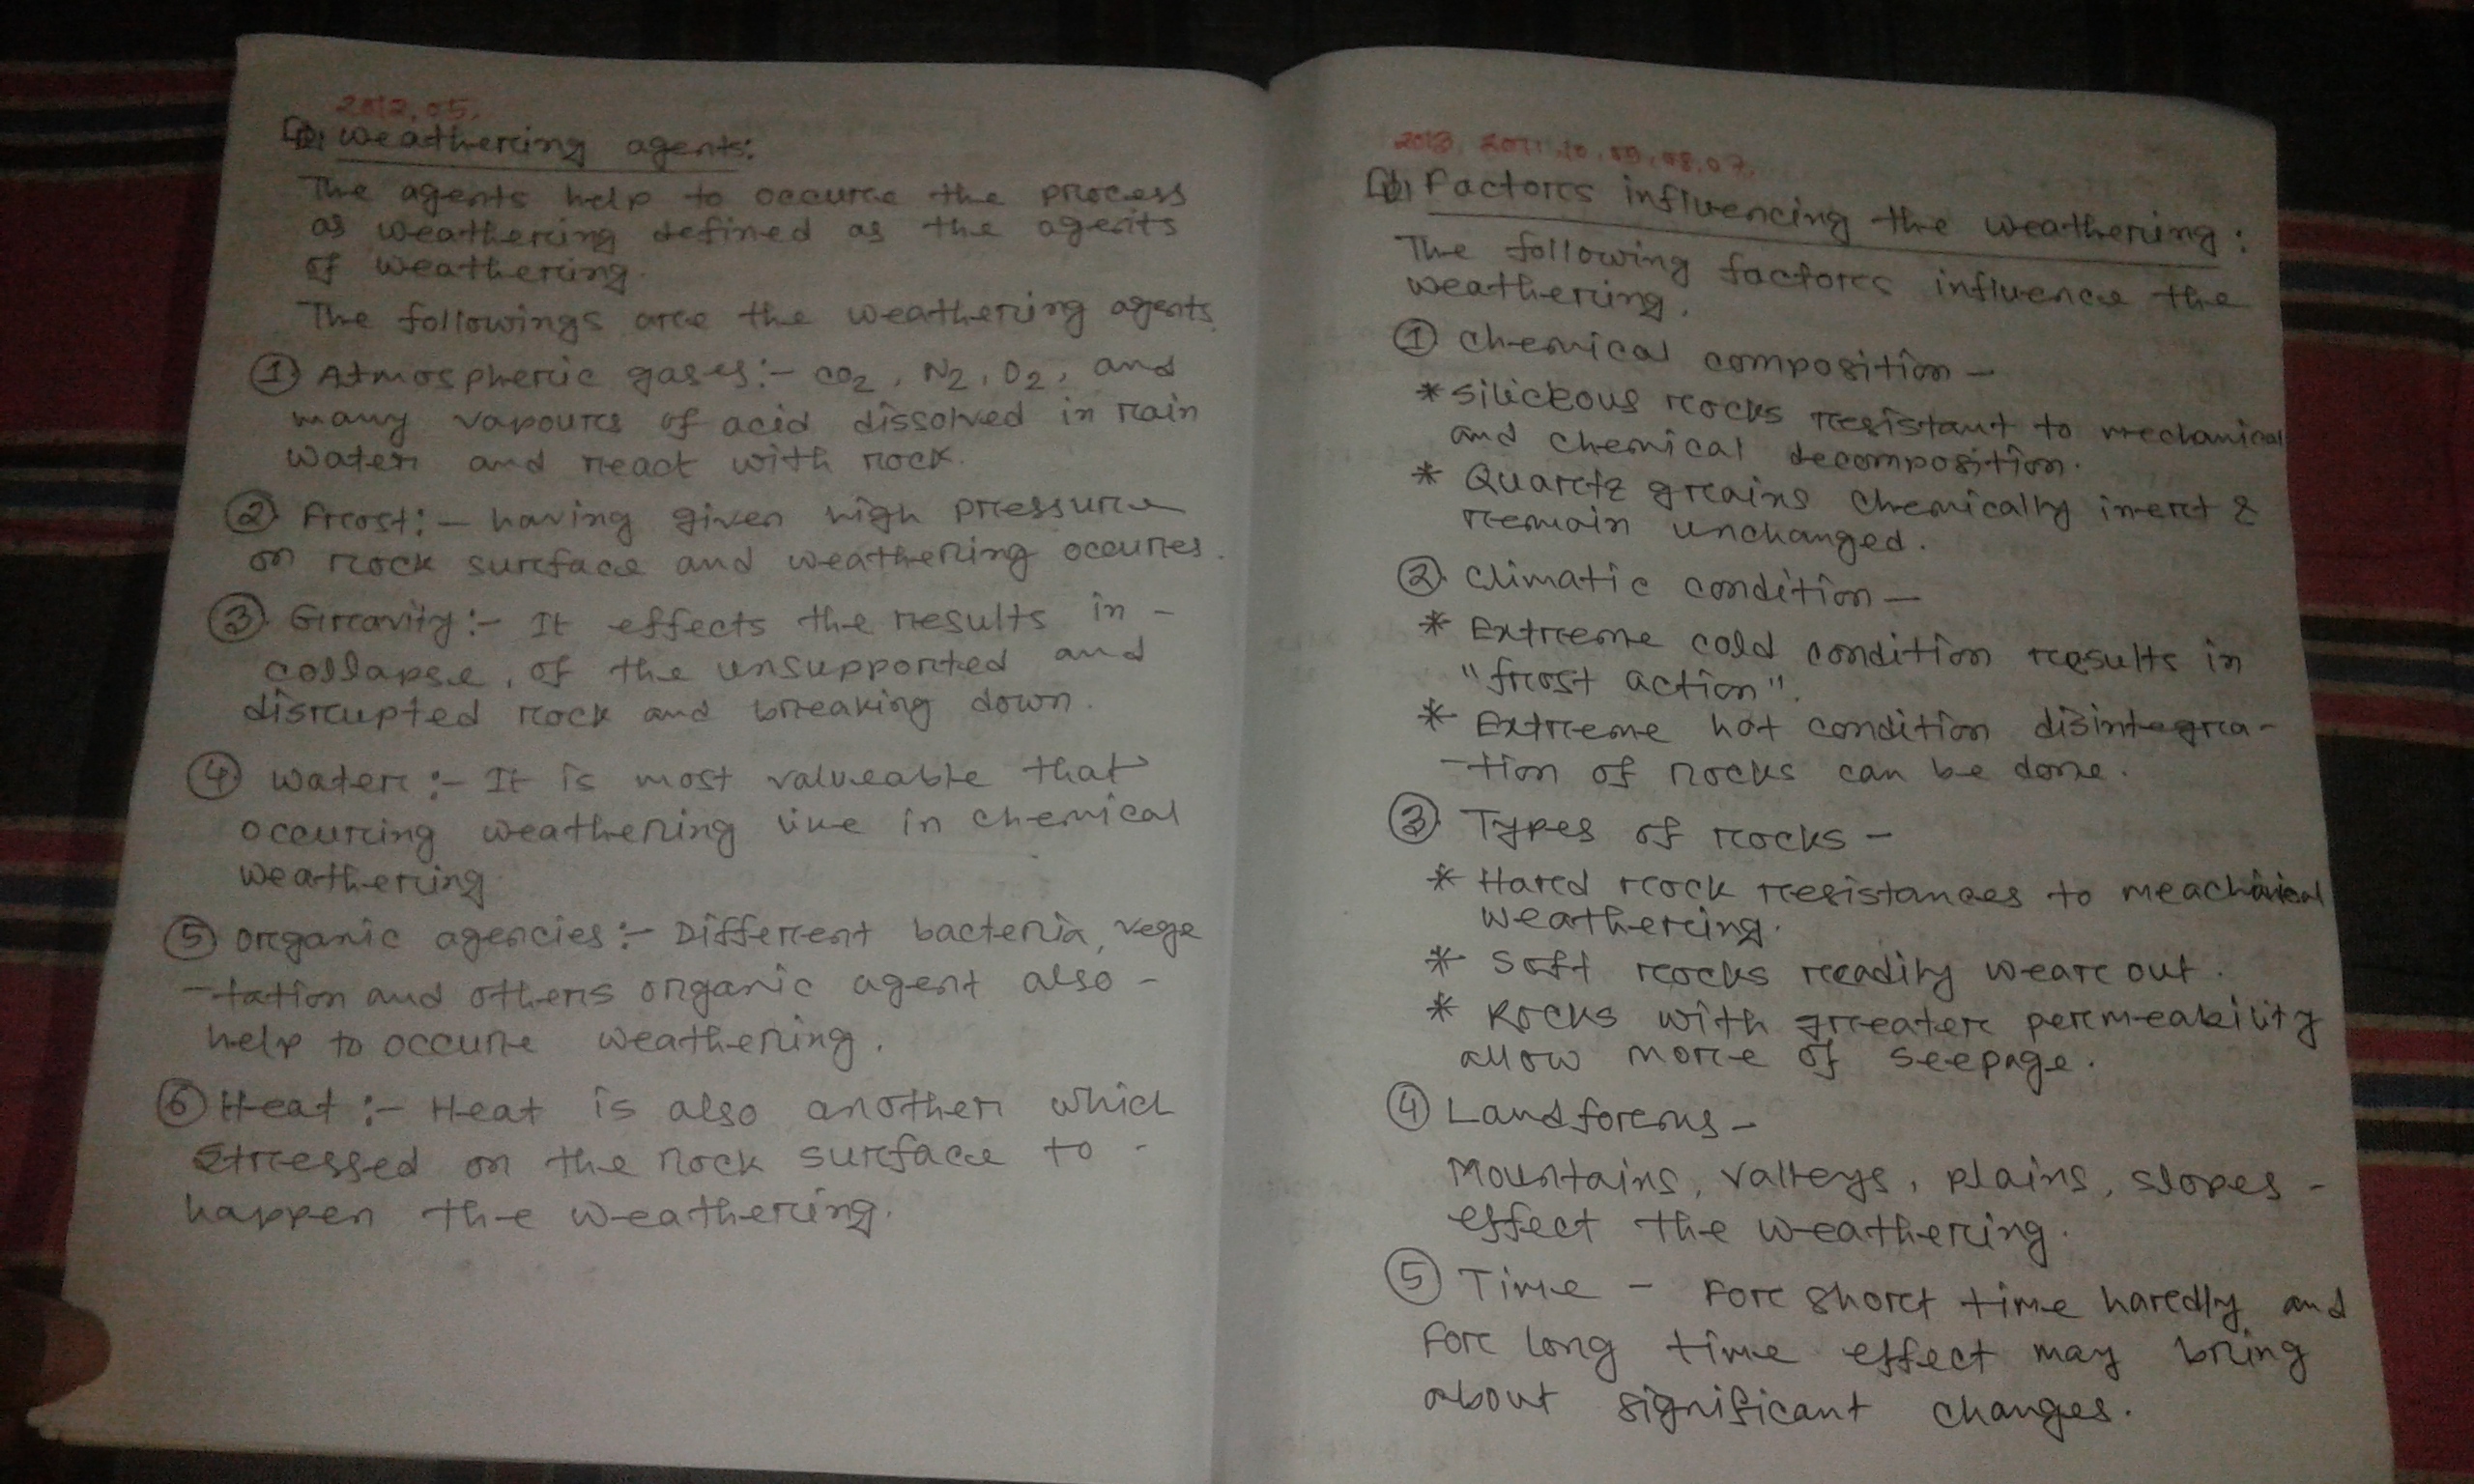 2012, 05,
Weathering agents:
The agents help to occure the process
as weathering defined as the agents
of weathering.
The followings are the weathering agents.
① Atmospheric gases:- CO2, N2, O2, and
many vapours of acid dissolved in rain
water and react with rock.
② Frost:- having given high pressure
on rock surface and weathering occures.
③ Gravity:- It effects the results in -
collapse, of the unsupported and
disrupted rock and breaking down.
④ Water:- It is most valueable that
occuring weathering like in chemical
weathering
⑤ Organic agencies:- Different bacteria, vege
-tation and others organic agent also -
help to occure weathering.
⑥ Heat:- Heat is also another which
stressed on the rock surface to -
happen the weathering.
2013, 2011, 10, 09, 08, 07,
Factors influencing the weathering:
The following factors influence the
weathering.
① Chemical composition -
* Siliceous rocks resistant to mechanical
and chemical decomposition.
* Quartz grains chemically inert &
remain unchanged.
② Climatic condition -
* Extreme cold condition results in
"frost action".
* Extreme hot condition disintegra-
-tion of rocks can be done.
③ Types of rocks -
* Hard rock resistances to meachanical
weathering.
* Soft rocks readily weare out.
* Rocks with greater permeability
allow more of seepage.
④ Landforms -
Mountains, valleys, plains, slopes -
effect the weathering.
⑤ Time - For short time hardly and
for long time effect may bring
about significant changes.